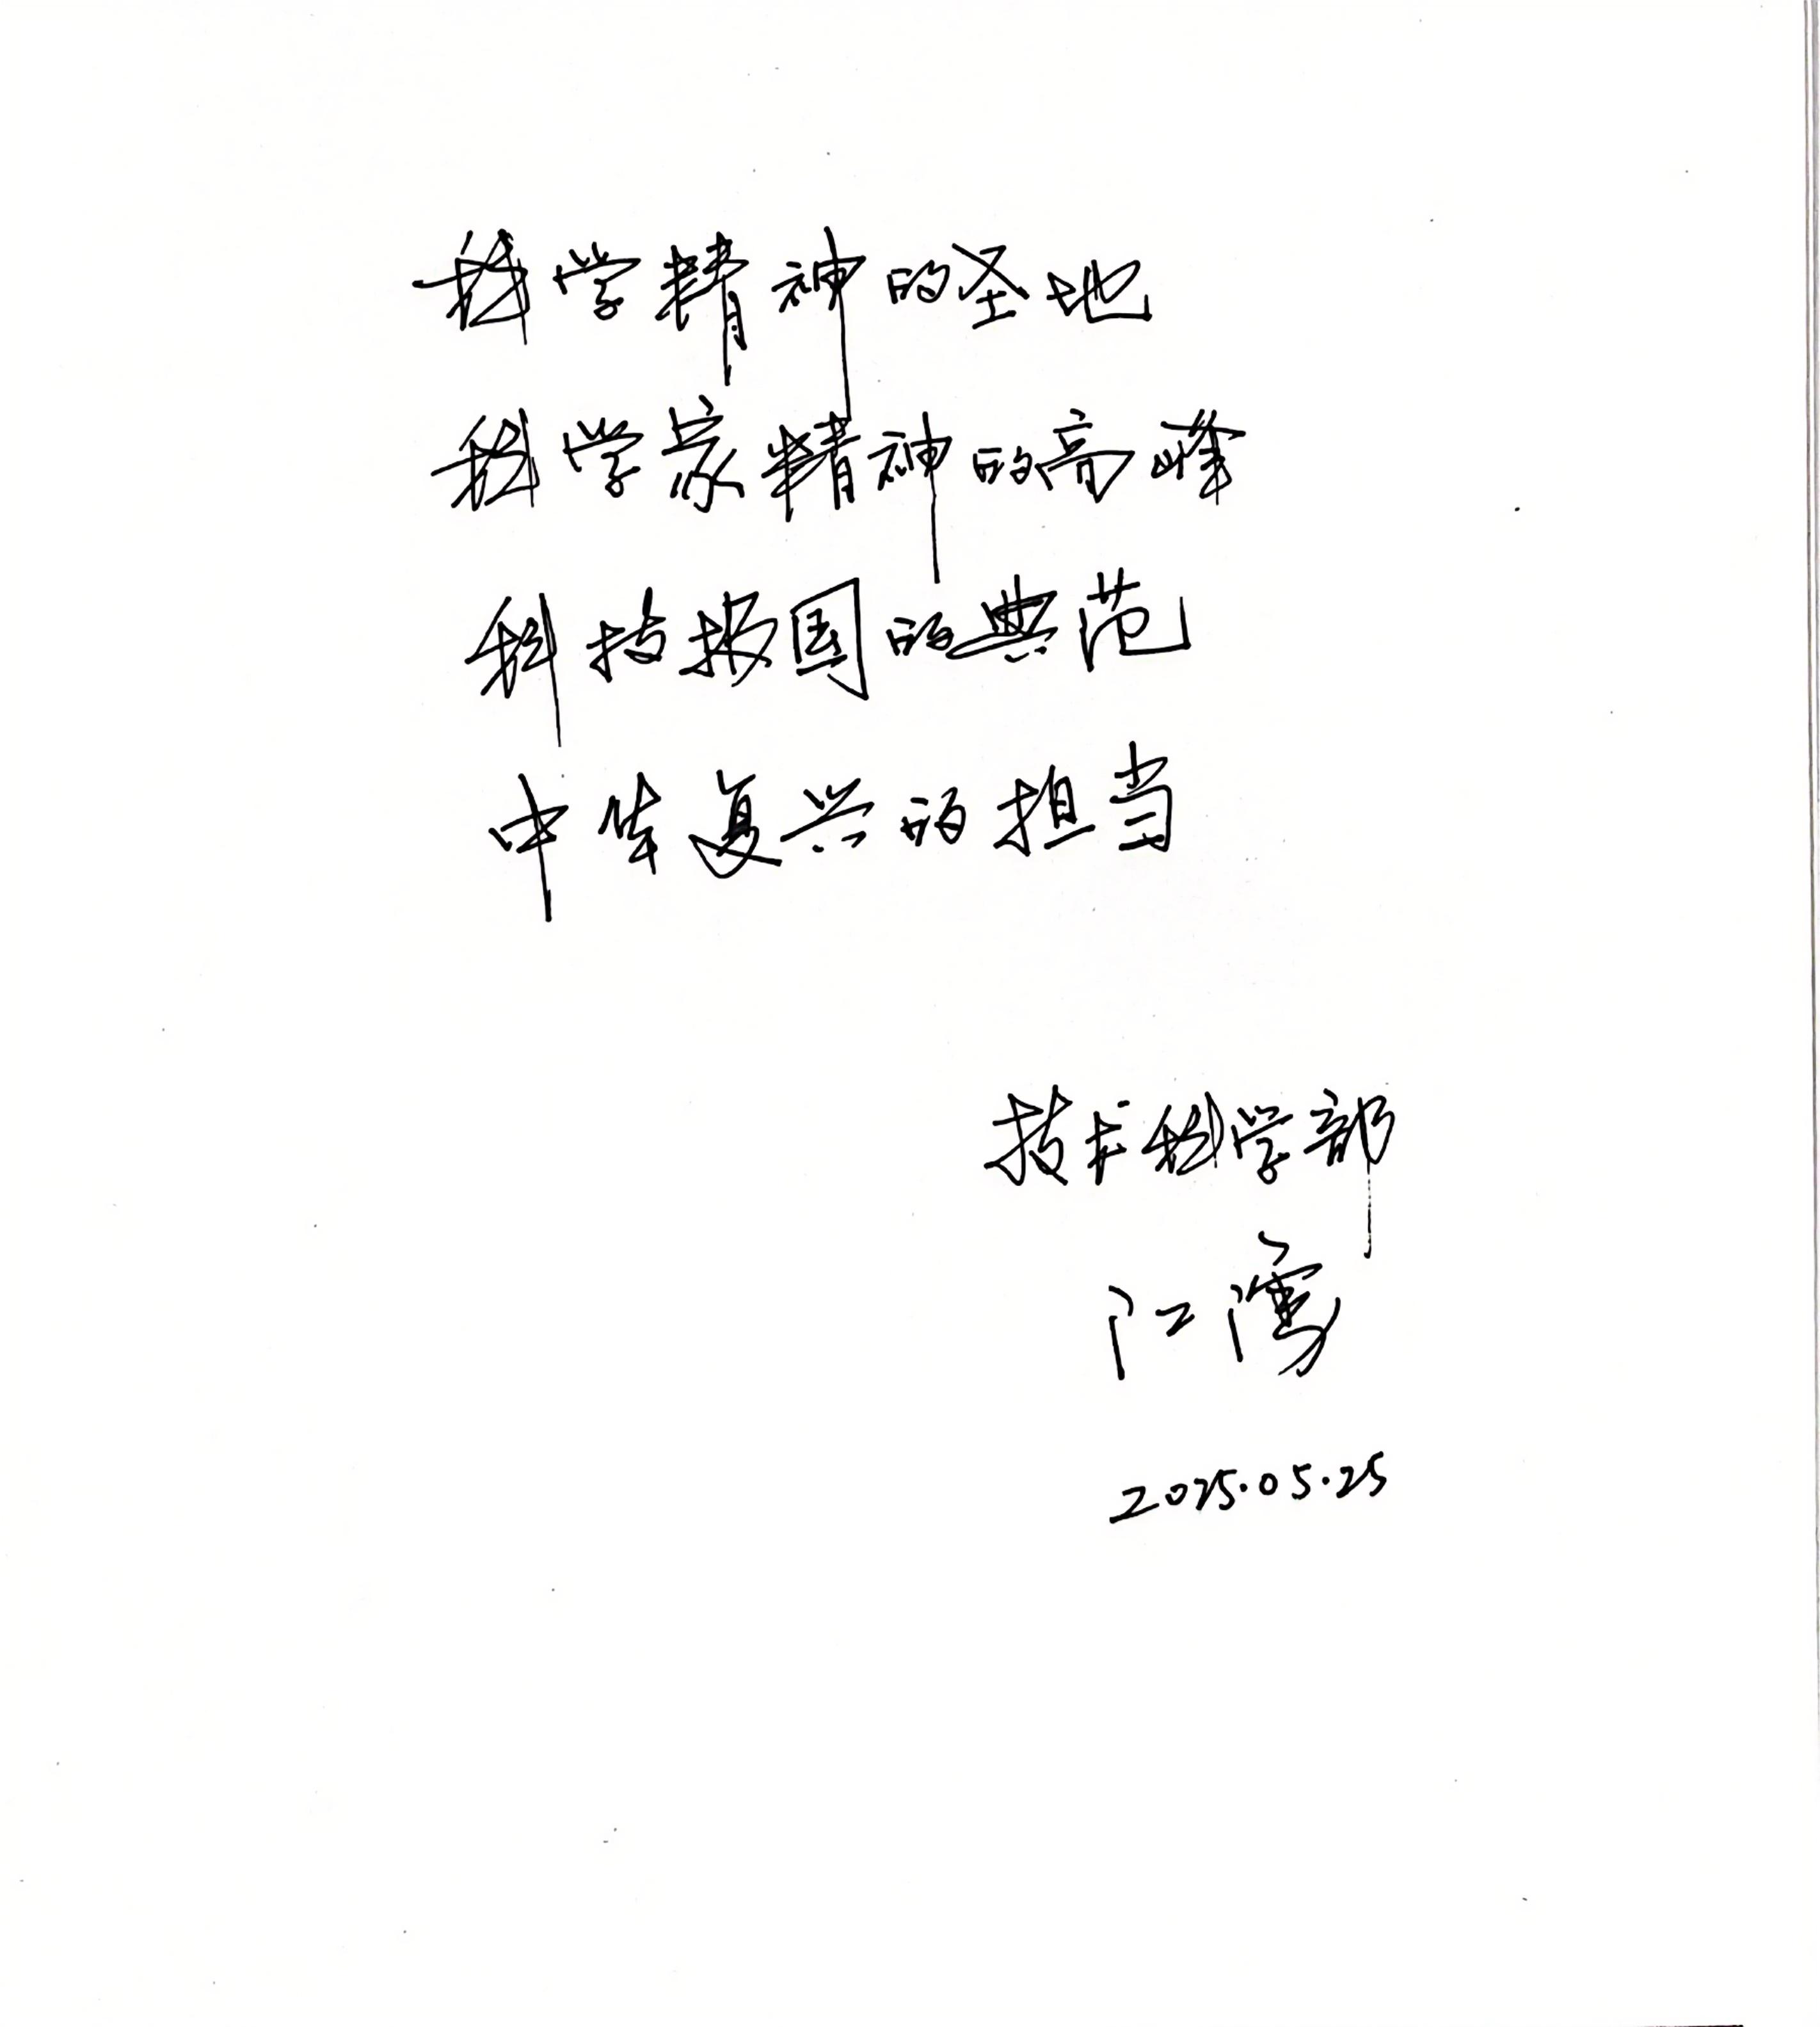 科学精神的圣地
科学家精神的高峰
科技报国的典范
中华复兴的担当
技术科学部
江
2025.05.25